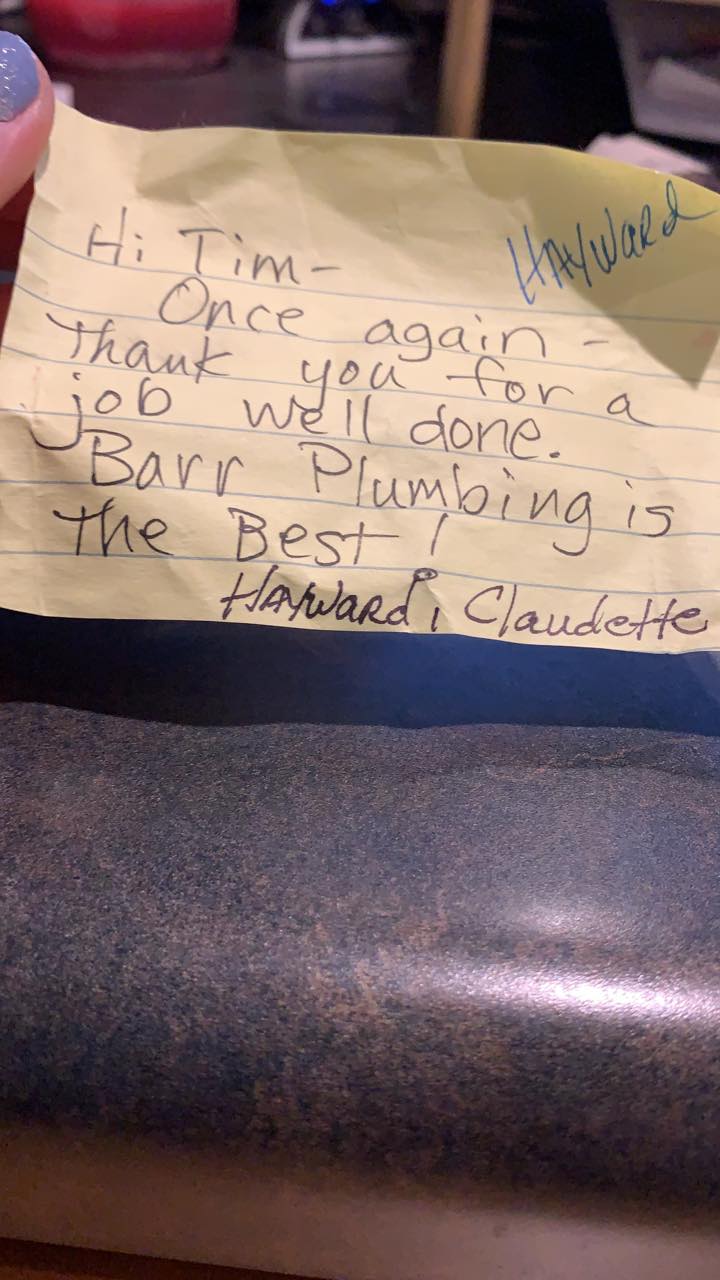 HAYWARD
Hi Tim-
Once again -
Thank you for a
job well done.
Barr Plumbing is
the Best!
HAYWARD, Claudette